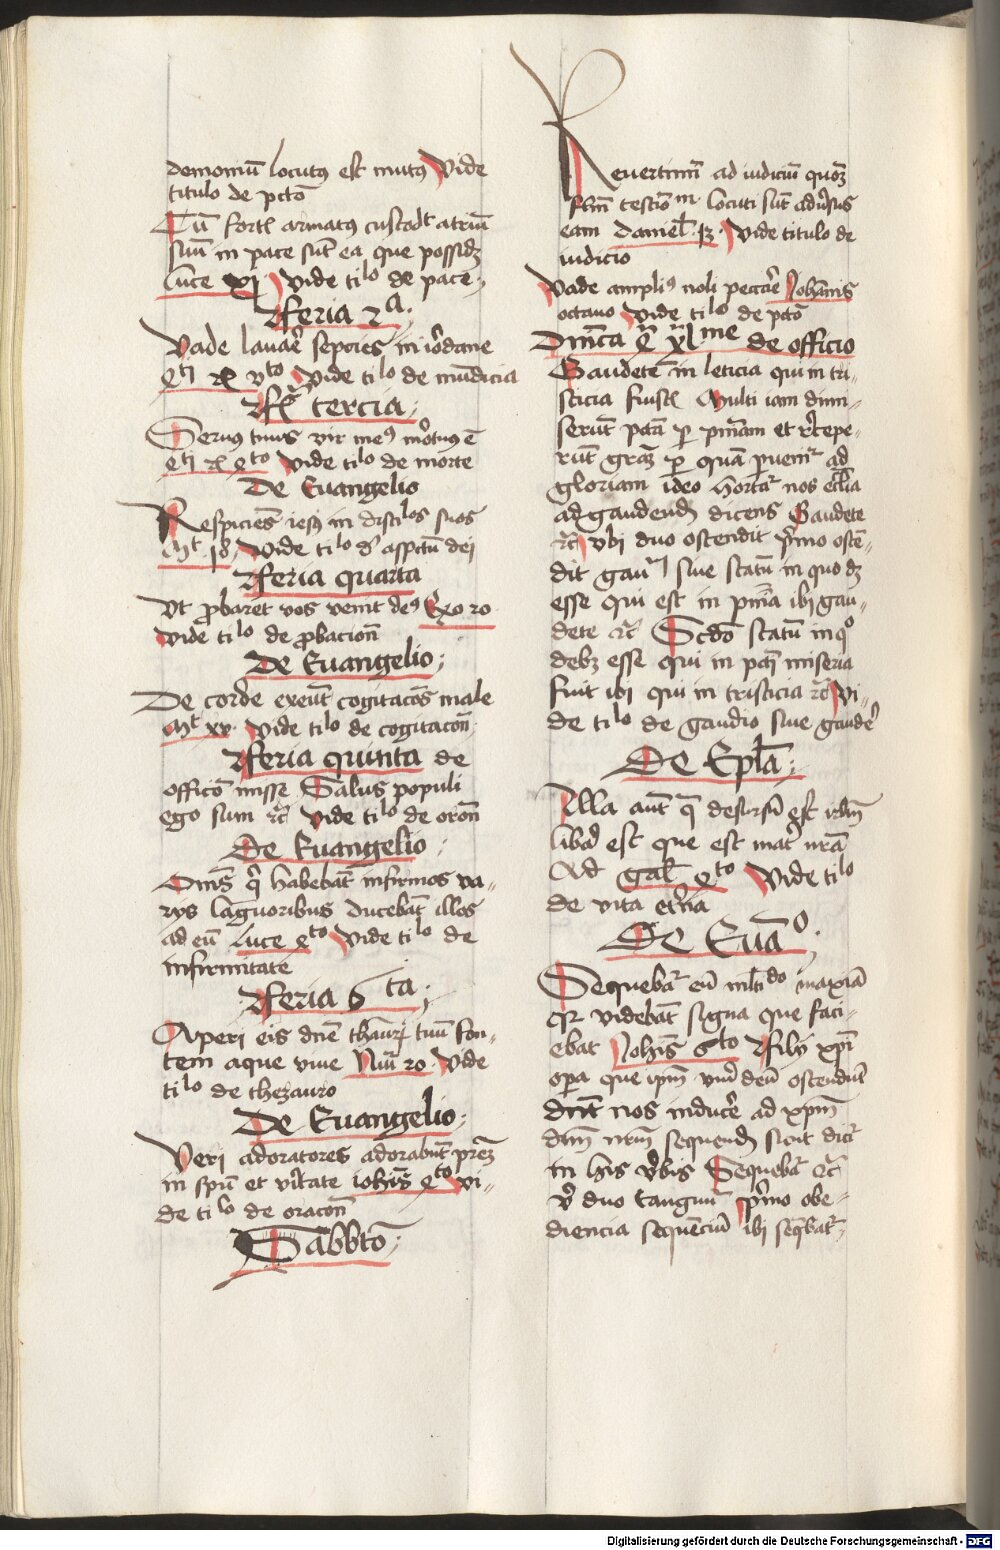 demoniū locutꝰ est mutꝰ Vide
titulo de pctō
Cū fortꝭ armatꝰ custodꝭt atriū
suū in pace sūt ea que possidꝫ
luce xj Vide tilo de pace
Feria 2a
Vade lavare septies in iordane
4ti R vto Vide tilo de mūdicia
Fꝭ tercia
Seruꝰ tuus vir meꝰ mortuꝰ ē
4ti R 4to Vide tilo de morte
De Euangelio
Respiciēs iesꝰ in discilos suos
Mt 18 Vide tilo d' aspctū dei
Feria quarta
Vt probaret vos venit deꝰ Exo 20
Vide tilo de probacion̄
De Euangelio
De corde exeūt cogitacōs male
Mt xv Vide tilo de cogitacōn
Feria quinta de
officō misse Salus populi
ego sum ꝛc̄ Vide tilo de orōn
De Euangelio
Om̄s q̄ habebāt infirmos va-
rys lāguoribus ducebāt illos
ad eū luce 4to Vide tilo de
infirmitate
Feria 6ta
Aperi eis dn̄e thaurꝝ tuū fon-
tem aque viue Nūi 20 Vide
tilo de thezauro
De Euangelio
Veri adoratores adorabūt prēꝫ
in spū et vītate iohīs 4to vi-
de tilo de oracōn
Sabbtō
Reuertimī ad iudiciū quoꝫ
flm̄ testiōm locuti sūt adūsus
eam daniel 13 Vide titulo de
iudicio
Vade ampliꝰ noli peccāe Johānis
octauo Vide tilo de pctō
Dn̄ica 4ª xlme de officio
Gaudete in leticia qui in tri-
sticia fuistꝭ Multi iam dimi-
serūt pctā p pn̄iam et recepe-
rūt grāꝫ p quā puenīt ad
gloriam ideo hortāt nos ecclīa
ad gaudendꝫ dicens Gaudete
ꝛc̄ Vbi duo ostendit Primo ostē-
dit gaud' siue statū in quo dꝫ
esse qui est in pn̄ia ibi gau-
dete ꝛc̄ Scdō statū in qo
debꝫ esse qui in pctī miseria
fuit ibi qui in tristicia ꝛc̄ Vi-
de tilo de gaudio siue gaudē
De Epl̄a
Illa aūt q̄ desursū est irlm̄
libā est que est mat' nr̄a
Ad gal' 4to Vide tilo
de vita etn̄a
De Euāo
Sequebat' eū mltido maxīa
qꝛ videbāt signa que faci-
ebat Johīs 6to Filij xpī
opa que ipm̄ vm̄ deū ostendūt
dn̄t nos inducere ad xpm̄
dm̄ nr̄m sequendꝫ sicut dicit'
in his v̄bis Sequebat' ꝛc̄
Vb' duo tangunt' Primo obe-
diencia sequenciū ibi seq̄bat'
Digitalisierung gefördert durch die Deutsche Forschungsgemeinschaft - DFG